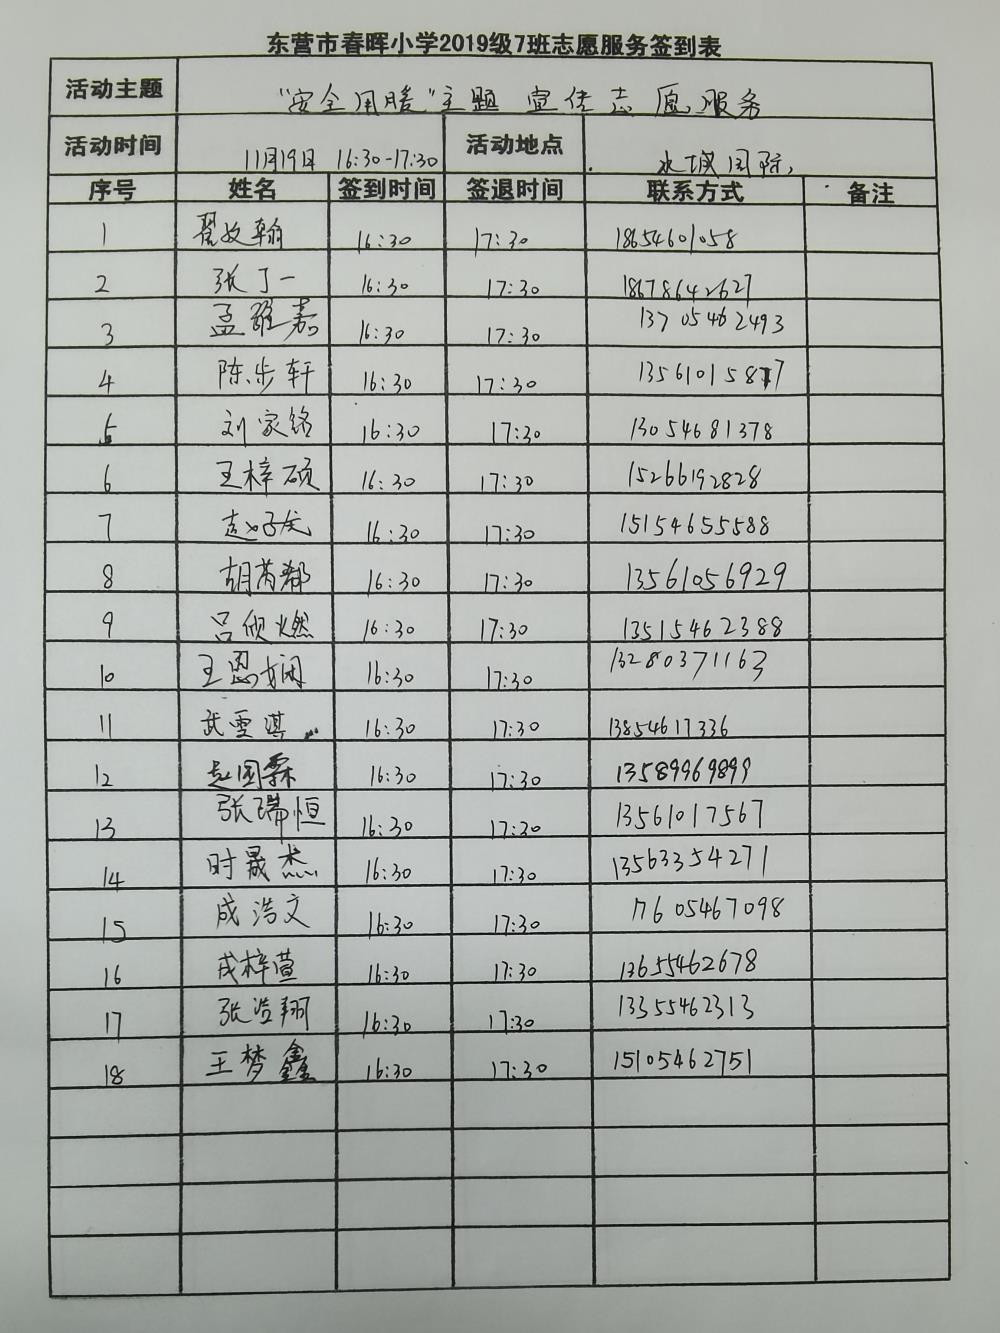 东营市春晖小学2019级7班志愿服务签到表
活动主题 "安全用暖"主题 宣传志愿服务
活动时间 11月19日 16:30-17:30 活动地点 水城国际
序号 姓名 签到时间 签退时间 联系方式 备注
1 翰 16:30 17:30 18654601058
2 张丁一 16:30 17:30 18678642627
3 孟 嘉 16:30 17:30 13705462493
4 陈步轩 16:30 17:30 13561015877
5 刘家铭 16:30 17:30 13054681378
6 王梓硕 16:30 17:30 15266192828
7 赵子 16:30 17:30 15154655588
8 胡芮 16:30 17:30 13561056929
9 吕欣燃 16:30 17:30 13515462388
10 王恩娴 16:30 17:30 13280371163
11 武雯淇 16:30 17:30 13854617336
12 赵国霖 16:30 17:30 13589969899
13 张瑞恒 16:30 17:30 13561017567
14 时晟杰 16:30 17:30 13563354271
15 成浩文 16:30 17:30 17605467098
16 成梓萱 16:30 17:30 13655462678
17 张浩翔 16:30 17:30 13355462313
18 王梦鑫 16:30 17:30 15105462751